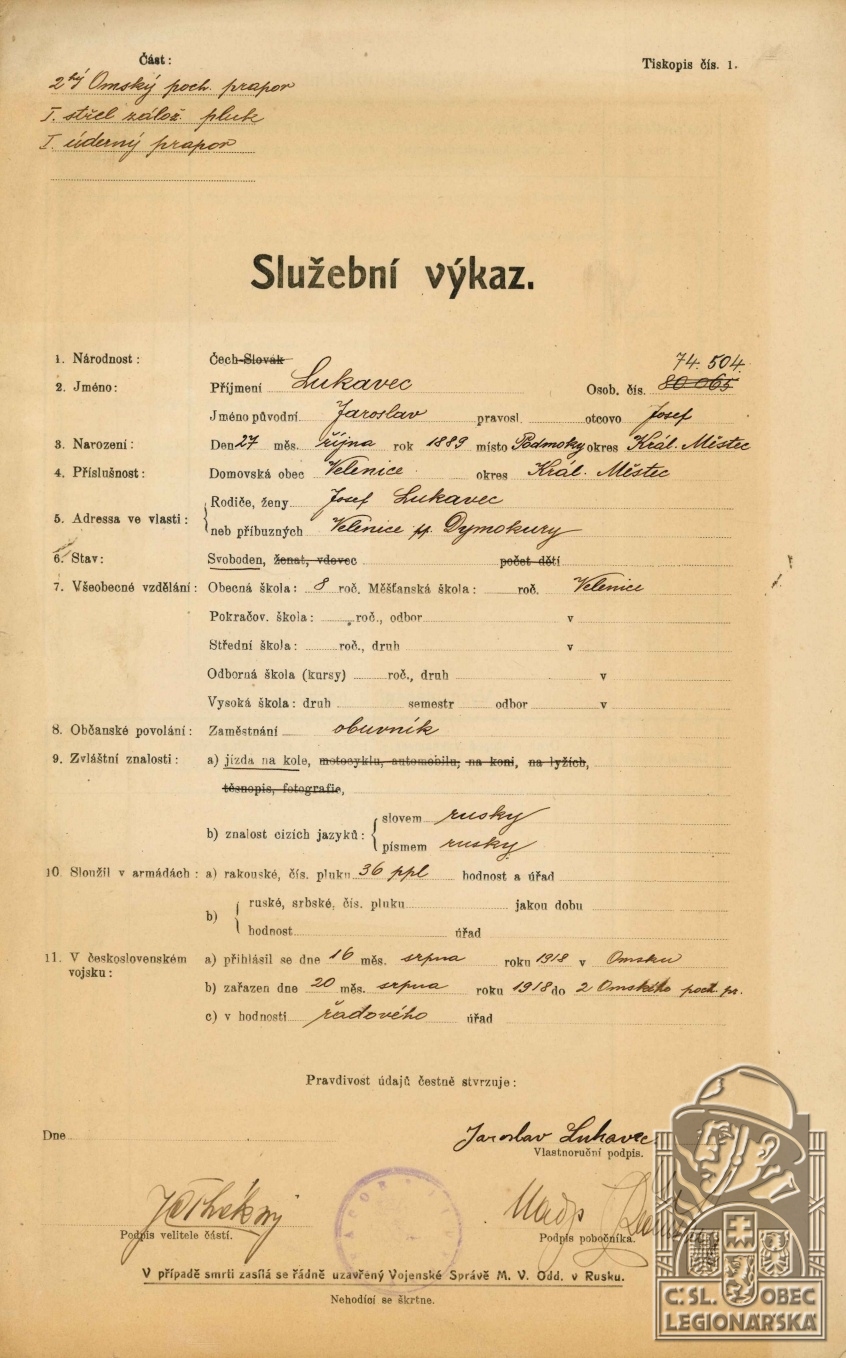 Část:
Tiskopis čís. 1.
2hý Omský poch. prapor
I. střel. zálož. pluk
I. úderný prapor
Služební výkaz.
1. Národnost: Čech-Slovák 74.504.
2. Jméno: Příjmení Lukavec Osob. čís. 80065
Jméno původní Jaroslav pravosl. otcovo Josef
3. Narození: Den 27 měs. října rok 1889 místo Podmoky okres Král. Městec
4. Příslušnost: Domovská obec Velenice okres Král. Městec
5. Adressa ve vlasti: Rodiče, ženy Josef Lukavec
neb příbuzných Velenice pp. Dymokury
6. Stav: Svoboden, ženat, vdovec počet dětí
7. Všeobecné vzdělání: Obecná škola: 8 roč. Měšťanská škola: roč. Velenice
Pokračov. škola: roč., odbor v
Střední škola: roč., druh v
Odborná škola (kursy) roč., druh v
Vysoká škola: druh semestr odbor v
8. Občanské povolání: Zaměstnání obuvník
9. Zvláštní znalosti: a) jízda na kole, motocyklu, automobilu, na koni, na lyžích,
těsnopis, fotografie,
b) znalost cizích jazyků: slovem rusky
písmem rusky
10. Sloužil v armádách: a) rakouské, čís. pluku 36 ppl hodnost a úřad
b) ruské, srbské, čís. pluku jakou dobu
hodnost úřad
11. V československém vojsku: a) přihlásil se dne 16 měs. srpna roku 1918 v Omsku
b) zařazen dne 20 měs. srpna roku 1918 do 2 Omského poch. pr.
c) v hodnosti řadového úřad
Pravdivost údajů čestně stvrzuje:
Dne
Jaroslav Lukavec.
Vlastnoruční podpis.
Podpis velitele části.
Podpis pobočníka.
V případě smrti zasílá se řádně uzavřený Vojenské Správě M. V. Odd. v Rusku.
Nehodící se škrtne.
Č. SL. OBEC
LEGIONÁŘSKÁ